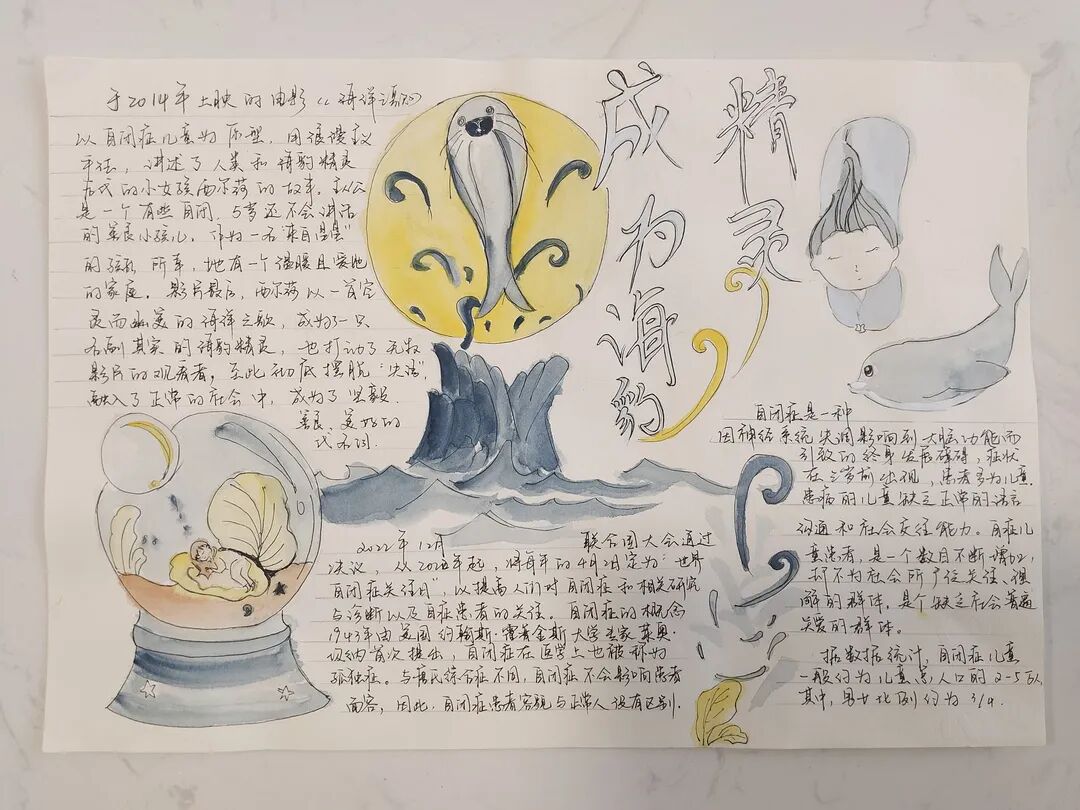 成为海豹
精灵
于2014年上映的电影《海洋之歌》
以自闭症儿童为原型,用浪漫主义
手法,讲述了人类和海豹精灵
后代的小女孩西尔莎的故事。主人公
是一个有些自闭,5岁还不会讲话
的善良小孩儿,作为一名“来自星星”
的孩子,所幸,她有一个温暖且爱她
的家庭。影片最后,西尔莎以一首空
灵而幽美的海洋之歌,成为了一只
名副其实的海豹精灵,也打动了无数
影片的观看者,至此彻底摆脱“失语”,
融入了正常的社会中,成为了坚毅
善良、美好的
代名词.
2022年12月 联合国大会通过
决议,从2008年起,将每年的4月2日定为“世界
自闭症关注日”,以提高人们对自闭症和相关研究
与诊断以及自症患者的关注。自闭症的概念
1943年由美国约翰斯·霍普金斯大学专家莱奥·
坎纳首次提出,自闭症在医学上也被称为
孤独症。与唐氏综合症不同,自闭症不会影响患者
面容,因此,自闭症患者容貌与正常人没有区别.
自闭症是一种
因神经系统失调影响到大脑功能而
引致的终身发展障碍,症状
在三岁前出现,患者多为儿童.
患病的儿童缺乏正常的语言
沟通和社会交往能力。自症儿
童患者,是一个数目不断增加,
村不为社会所广泛关注、理
解的群体,是个缺乏社会普遍
关爱的群体。
据数据统计,自闭症儿童
一般约为儿童总人口的2-5万人
其中,男女比例约为3/4.